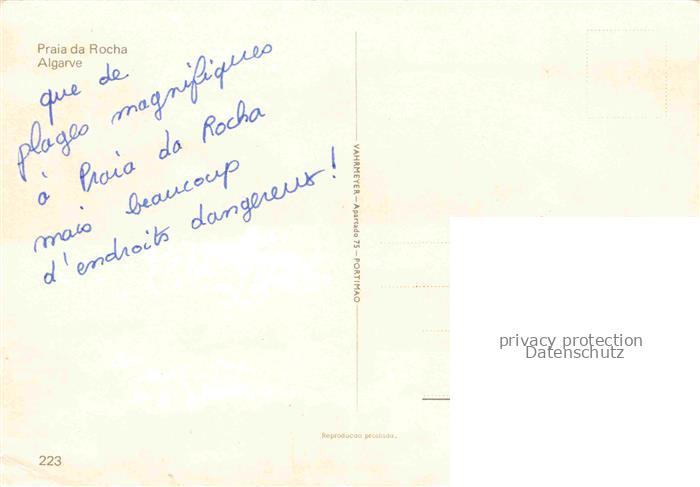 Praia da Rocha
Algarve
que de
plages magnifiques
à Praia da Rocha
mais beaucoup
d'endroits dangereux!
VAHRMEYER — Apartado 75 — PORTIMAO
privacy protection
Datenschutz
Reproducao proibida.
223